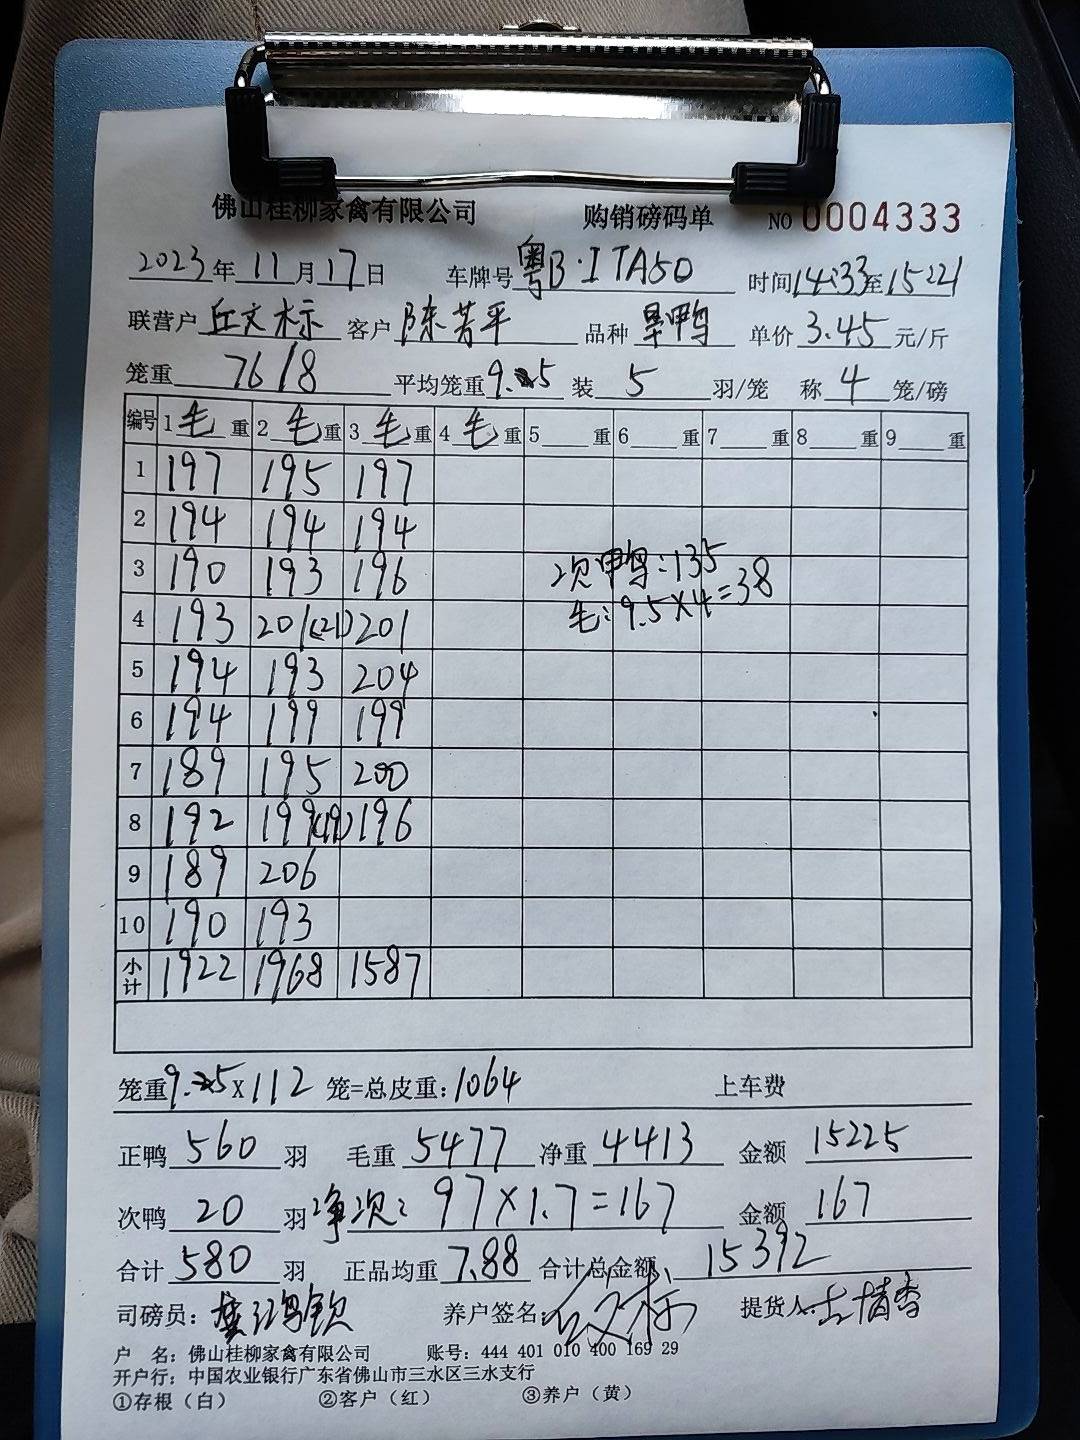 佛山桂柳家禽有限公司 购销磅码单 NO 0004333
2023年11月17日 车牌号粤B·1TA50 时间14:33至15:21
联营户丘文标 客户陈芳平 品种旱鸭 单价3.45元/斤
笼重7618 平均笼重9.5 装5羽/笼 称4笼/磅
编号 1毛重 2毛重 3毛重 4毛重 5重 6重 7重 8重 9重
1 197 195 197
2 194 194 194
3 190 193 196
次鸭:135
毛:9.5×4=38
4 193 201(21) 201
5 194 193 204
6 194 199 199
7 189 195 200
8 192 199(19) 196
9 189 206
10 190 193
小计 1922 1968 1587
笼重9.5×112笼=总皮重:1064 上车费
正鸭560羽 毛重5477 净重4413 金额15225
次鸭20羽 净次:97×1.7=167 金额167
合计580羽 正品均重7.88 合计总金额15392
司磅员: 养户签名:丘文标 提货人:
户 名:佛山桂柳家禽有限公司 账号:444 401 010 400 169 29
开户行:中国农业银行广东省佛山市三水区三水支行
①存根(白) ②客户(红) ③养户(黄)